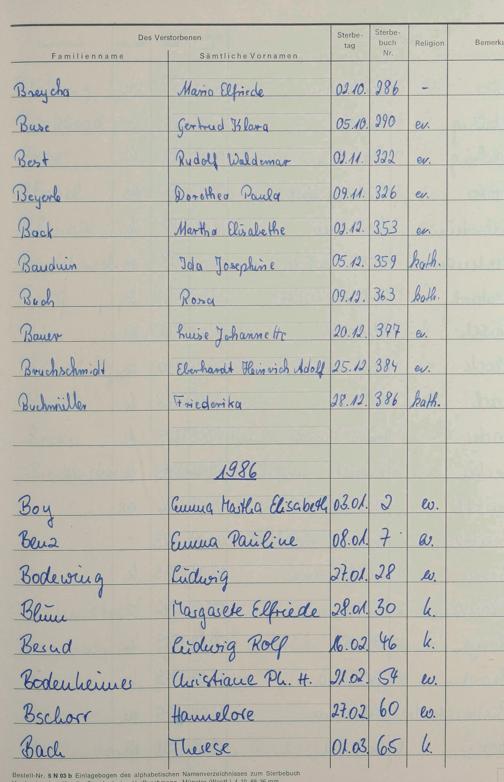 Des Verstorbenen Sterbe- tag Sterbe- buch Nr. Religion Bemerku
Familienname Sämtliche Vornamen
Breycha Maria Elfriede 02.10. 286 -
Buse Gertrud Klara 05.10. 290 ev.
Best Rudolf Waldemar 02.11. 322 ev.
Beyerle Dorothea Paula 09.11. 326 ev.
Back Martha Elisabethe 02.12. 353 ev.
Bauduin Ida Josephine 05.12. 359 kath.
Bach Rosa 09.12. 363 kath.
Bauer Luise Johannette 20.12. 377 ev.
Bruchschmidt Eberhardt Heinrich Adolf 25.12. 384 ev.
Buchmüller Friederika 28.12. 386 kath.
1986
Boy Emma Martha Elisabeth 03.01. 2 ev.
Benz Emma Pauline 08.01. 7 ev.
Bodewing Ludwig 27.01. 28 ev.
Blüm Margarete Elfriede 28.01. 30 k.
Besud Ludwig Rolf 16.02. 46 k.
Bodenheimer Christiane Ph. H. 21.02. 54 ev.
Bschorr Hannelore 27.02. 60 ev.
Bach Therese 01.03. 65 k.
Bestell-Nr. S N 03 b Einlagebogen des alphabetischen Namenverzeichnisses zum Sterbebuch